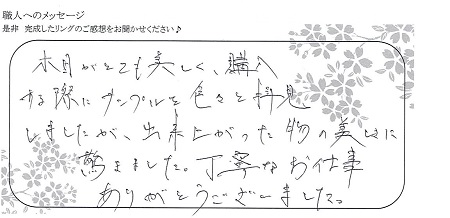 職人へのメッセージ
是非 完成したリングのご感想をお聞かせください♪
木目がとても美しく、購入
する際にサンプルを色々と拝見
しましたが、出来上がった物の美しさに
驚きました。丁寧なお仕事
ありがとうございました。